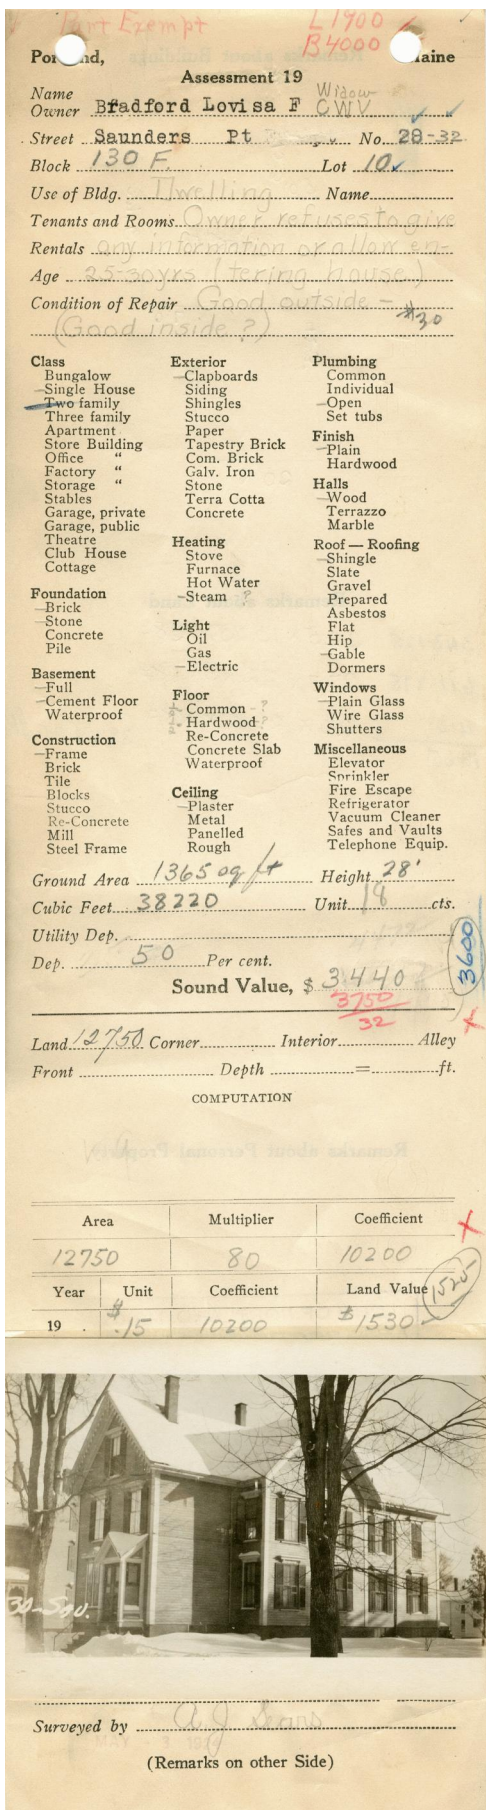 Part Exempt L1900
B4000
Por nd, aine
Assessment 19
Name Widow
Owner Bradford Lovisa F CWV
Street Saunders Pt No. 28-32
Block 130 F Lot 10
Use of Bldg. Dwelling Name
Tenants and Rooms Owner refuses to give
Rentals any information or allow en-
Age 25-30yrs (tering house.)
Condition of Repair Good outside - $30
(Good inside ?)
Class
Bungalow
Single House
Two family
Three family
Apartment
Store Building
Office "
Factory "
Storage "
Stables
Garage, private
Garage, public
Theatre
Club House
Cottage
Foundation
Brick
Stone
Concrete
Pile
Basement
Full
Cement Floor
Waterproof
Construction
Frame
Brick
Tile
Blocks
Stucco
Re-Concrete
Mill
Steel Frame
Exterior
Clapboards
Siding
Shingles
Stucco
Paper
Tapestry Brick
Com. Brick
Galv. Iron
Stone
Terra Cotta
Concrete
Heating
Stove
Furnace
Hot Water
Steam ?
Light
Oil
Gas
Electric
Floor
Common - ?
Hardwood ?
Re-Concrete
Concrete Slab
Waterproof
Ceiling
Plaster
Metal
Panelled
Rough
Plumbing
Common
Individual
Open
Set tubs
Finish
Plain
Hardwood
Halls
Wood
Terrazzo
Marble
Roof — Roofing
Shingle
Slate
Gravel
Prepared
Asbestos
Flat
Hip
Gable
Dormers
Windows
Plain Glass
Wire Glass
Shutters
Miscellaneous
Elevator
Sprinkler
Fire Escape
Refrigerator
Vacuum Cleaner
Safes and Vaults
Telephone Equip.
Ground Area 1365 sq ft Height 28'
Cubic Feet 38220 Unit 18 cts.
Utility Dep.
Dep. 50 Per cent. 3600
Sound Value, $ 3440
3750
32
Land 12750 Corner Interior Alley
Front Depth = ft.
COMPUTATION
Area Multiplier Coefficient
12750 80 10200
Year Unit Coefficient Land Value 1525
19 . $.15 10200 $1530
30-Sau.
Surveyed by A J Sears
(Remarks on other Side)